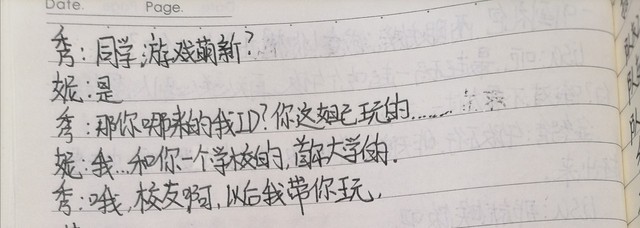 Date.
Page.
秀:同学,游戏萌新?
妮:是
秀:那你哪来的我ID?你这妲己玩的……
妮:我…和你一个学校的,首都大学的.
秀:哦,校友啊,以后我带你玩,